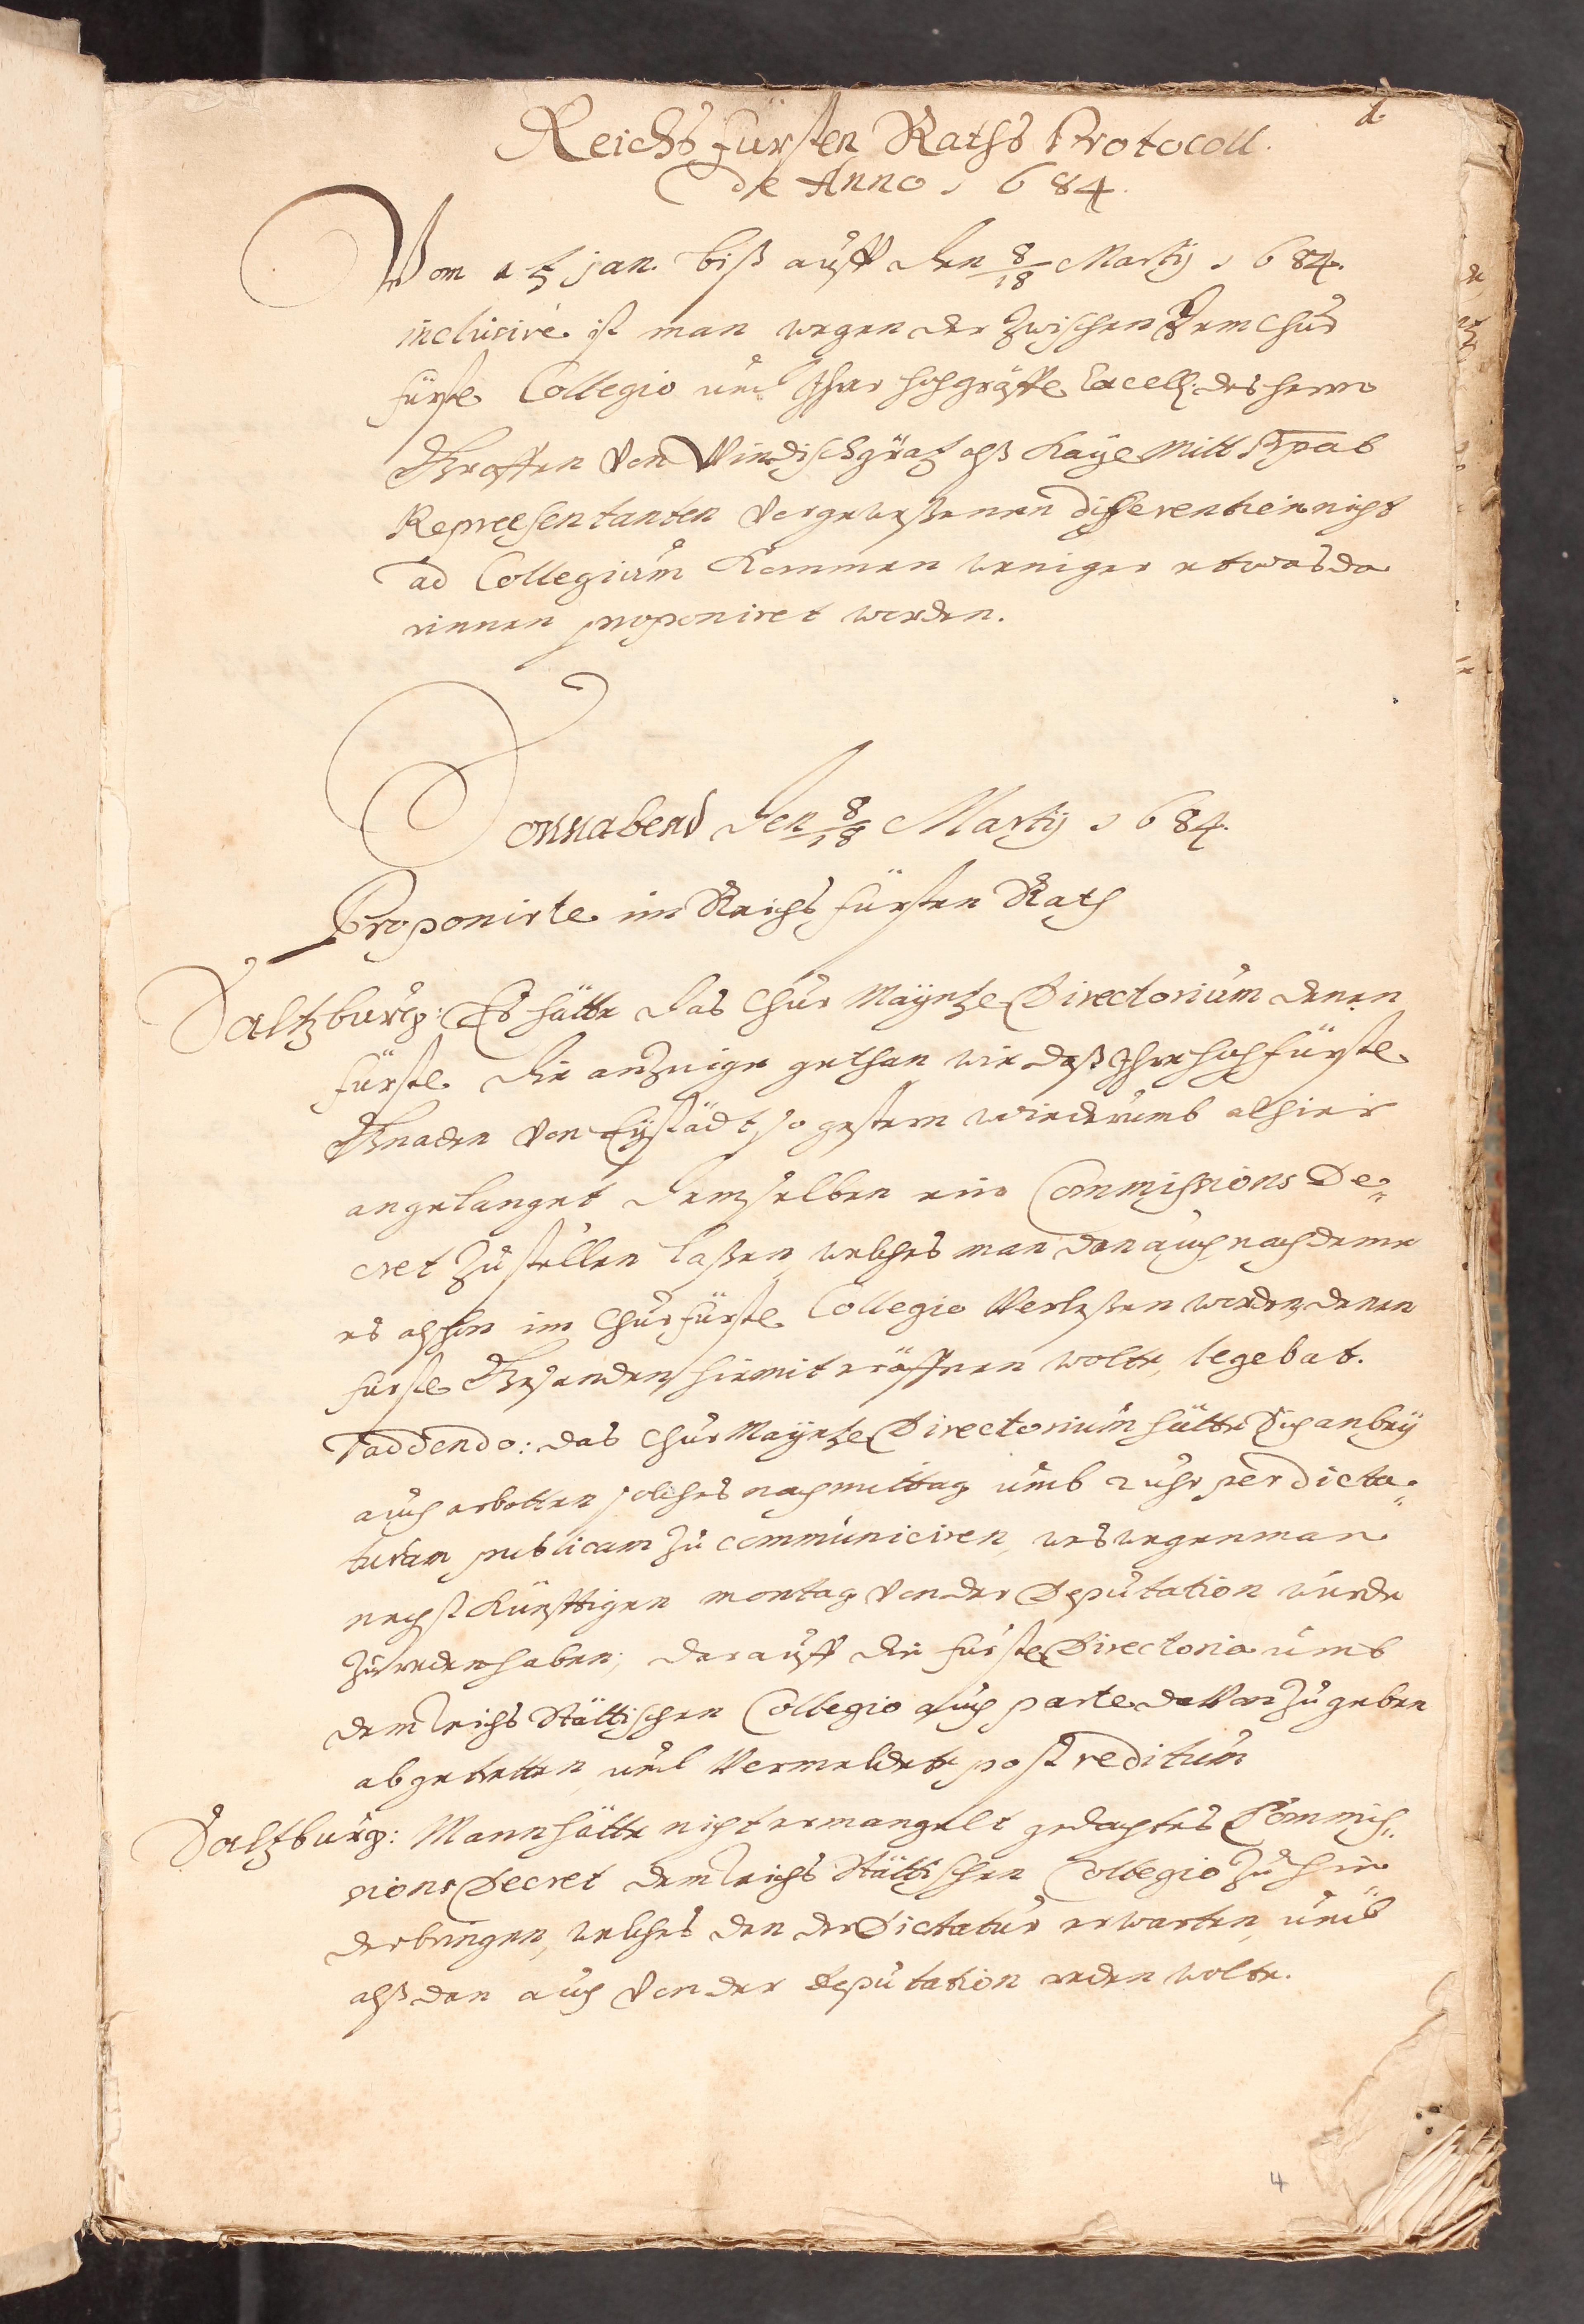 1.
Reichs Fürsten Raths Protocoll.
de Anno 1684.
Vom jan. biß auff den 8/18 Martij 1684.
inclusivè ist man wegen der zwischen dem Chur
fürstl. Collegio und Ihro hochgräffl. Excell. des herrn
Graffen von Windischgrätz alß Kayl.
Repræsentanten vorgewesenen differentien nicht
ad Collegium kommen weniger etwas da
rinnen proponiret worden.
Sonnabend den 8/18 Martij 1684.
Proponirte im Reichs Fürsten Rath
Saltzburg: Es hätte das Chur Mäyntzl. Directorium denen
fürstl. die anzeige gethan wie daß Ihre hochfürstl.
Gnaden von Eÿstädt, so gestern wiederumb alhier
angelanget demselben ein Commissions De=
cret zustellen laßen, welches man dan auch nachdeme
es alschon im Churfürstl. Collegio verleßen worden, denen
fürstl. Gesanden hiemit eröffnen wolte, legebat.
addendo: das Chur Maÿntzl. Directorium hätte sich anbeÿ
auch erbotten solches nachmittag umb 2 uhr per dicta=
turam publicam zu communiciren, weswegen man
nechst künfftigen montag von der Deputation würde
zu reden haben; darauff die fürstl. Directoria umb
dem Reichs Stättischen Collegio auch parte davon zu geben
abgetretten, und vermeldete post reditum
Saltzburg: Mann hätte nicht ermangelt gedachtes Commis=
sions Decret dem Reichs Stättischen Collegio zu hin
derbringen, welches den der Dictatur erwarten, und
alßdan auch von der Deputation reden wolte.
4